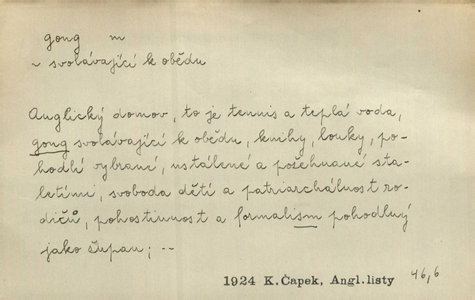 gong m
~ svolávající k obědu
Anglický domov, to je tennis a teplá voda,
gong svolávající k obědu, knihy, louky, po-
hodlí vybrané, ustálené a požehnané sta-
letími, svoboda dětí a patriarchálnost ro-
dičů, pohostinnost a formalism pohodlný
jako župan; --
1924 K.Čapek, Angl.listy 46,6